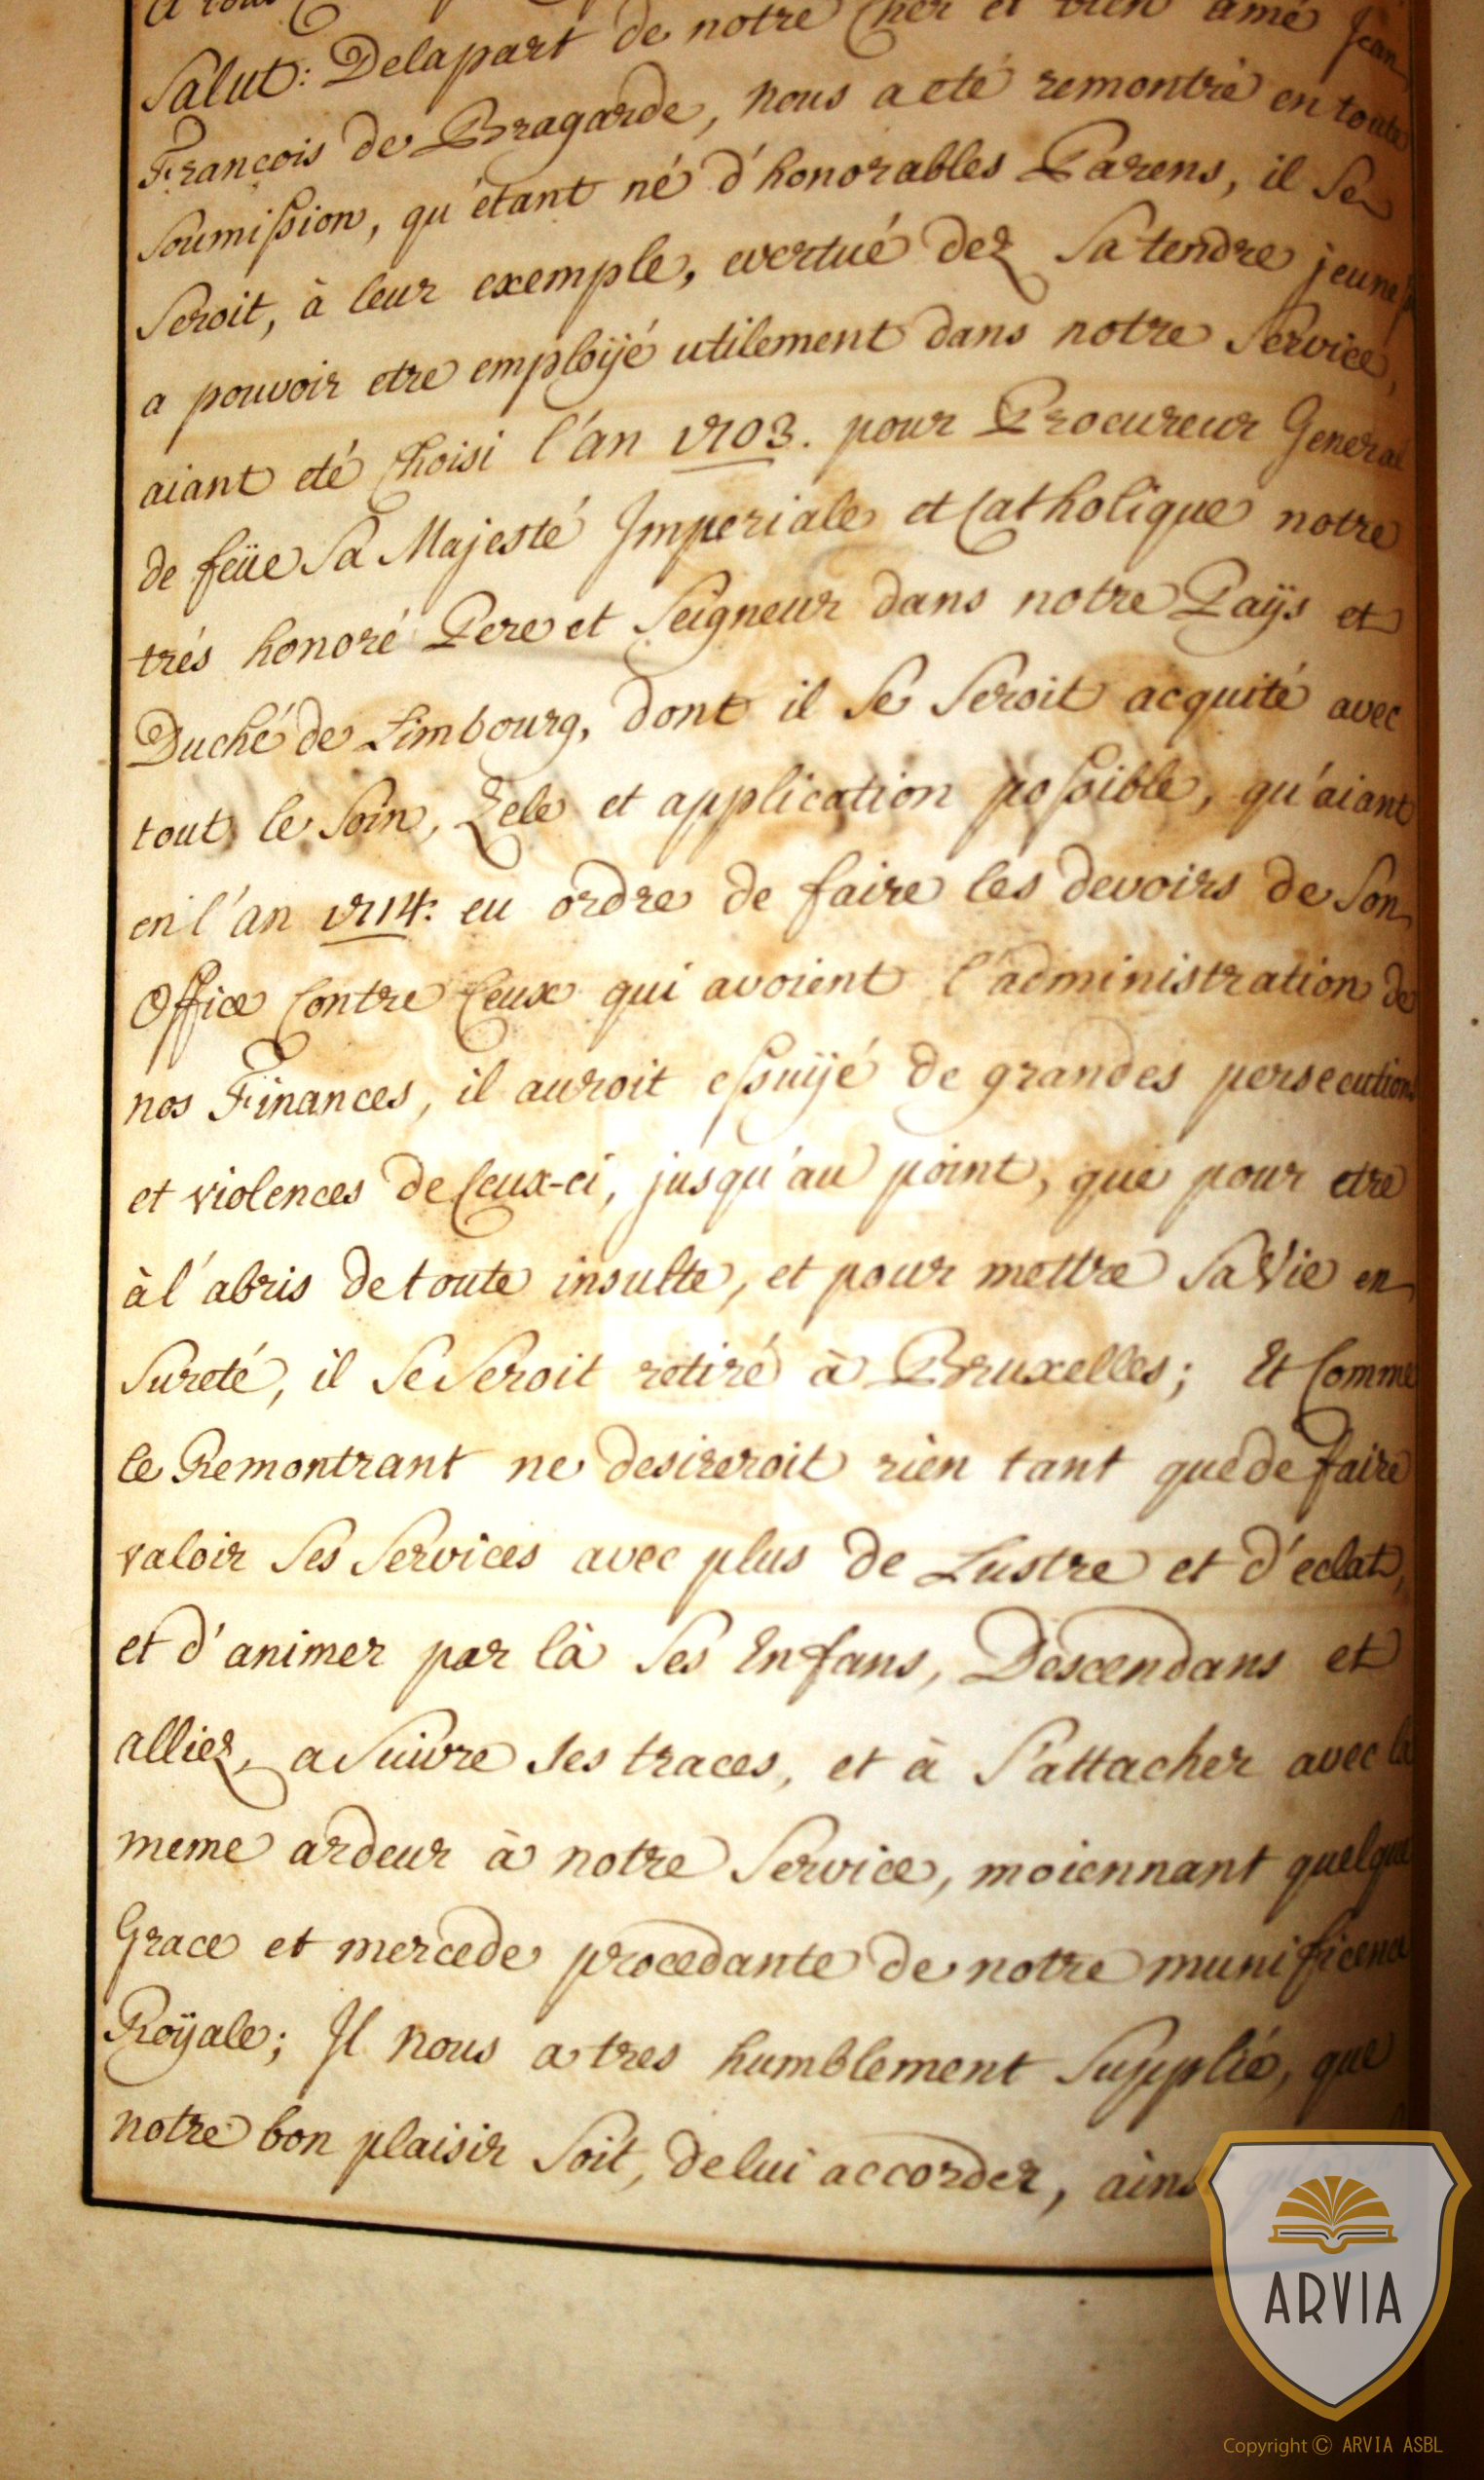 Salut: Delapart de notre Cher et bien amé Jean
François de Bragarde, nous a eté remontré en toute
Soumission, qu'étant né d'honorables Parens, il Se
Seroit, à leur exemple, evertué dez Sa tendre
a pouvoir etre employé utilement dans notre Service,
aiant eté Choisi l'an 1703. pour Procureur General
de feüe Sa Majesté Imperiale et Catholique notre
trés honoré Pere et Seigneur dans notre Païjs et
Duché de Limbourg, dont il Se Seroit acquité avec
tout le Soin, Zele et application possible, qu'aiant
en l'an 1714: eu ordre de faire les devoirs de Son
Office Contre Ceux qui avoient l'administration de
nos Finances, il auroit essuijé de grandes persecutions
et violences de Ceux-ci, jusqu'au point, que pour etre
à l'abris de toute insulte, et pour mettre Sa Vie en
Sureté, il Se Seroit retiré à Bruxelles; Et Comme
le Remontrant ne desireroit rien tant que de faire
valoir Ses Services avec plus de Lustre et d'eclat,
et d'animer par là Ses Enfans, Descendans et
alliez, a Suivre Ses traces, et à S'attacher avec la
meme ardeur à notre Service, moiennant quelque
Grace et mercede procedante de notre munificence
Roÿale; Il nous a tres humblement Supplié, que
notre bon plaisir Soit, de lui accorder,
ARVIA
Copyright © ARVIA ASBL